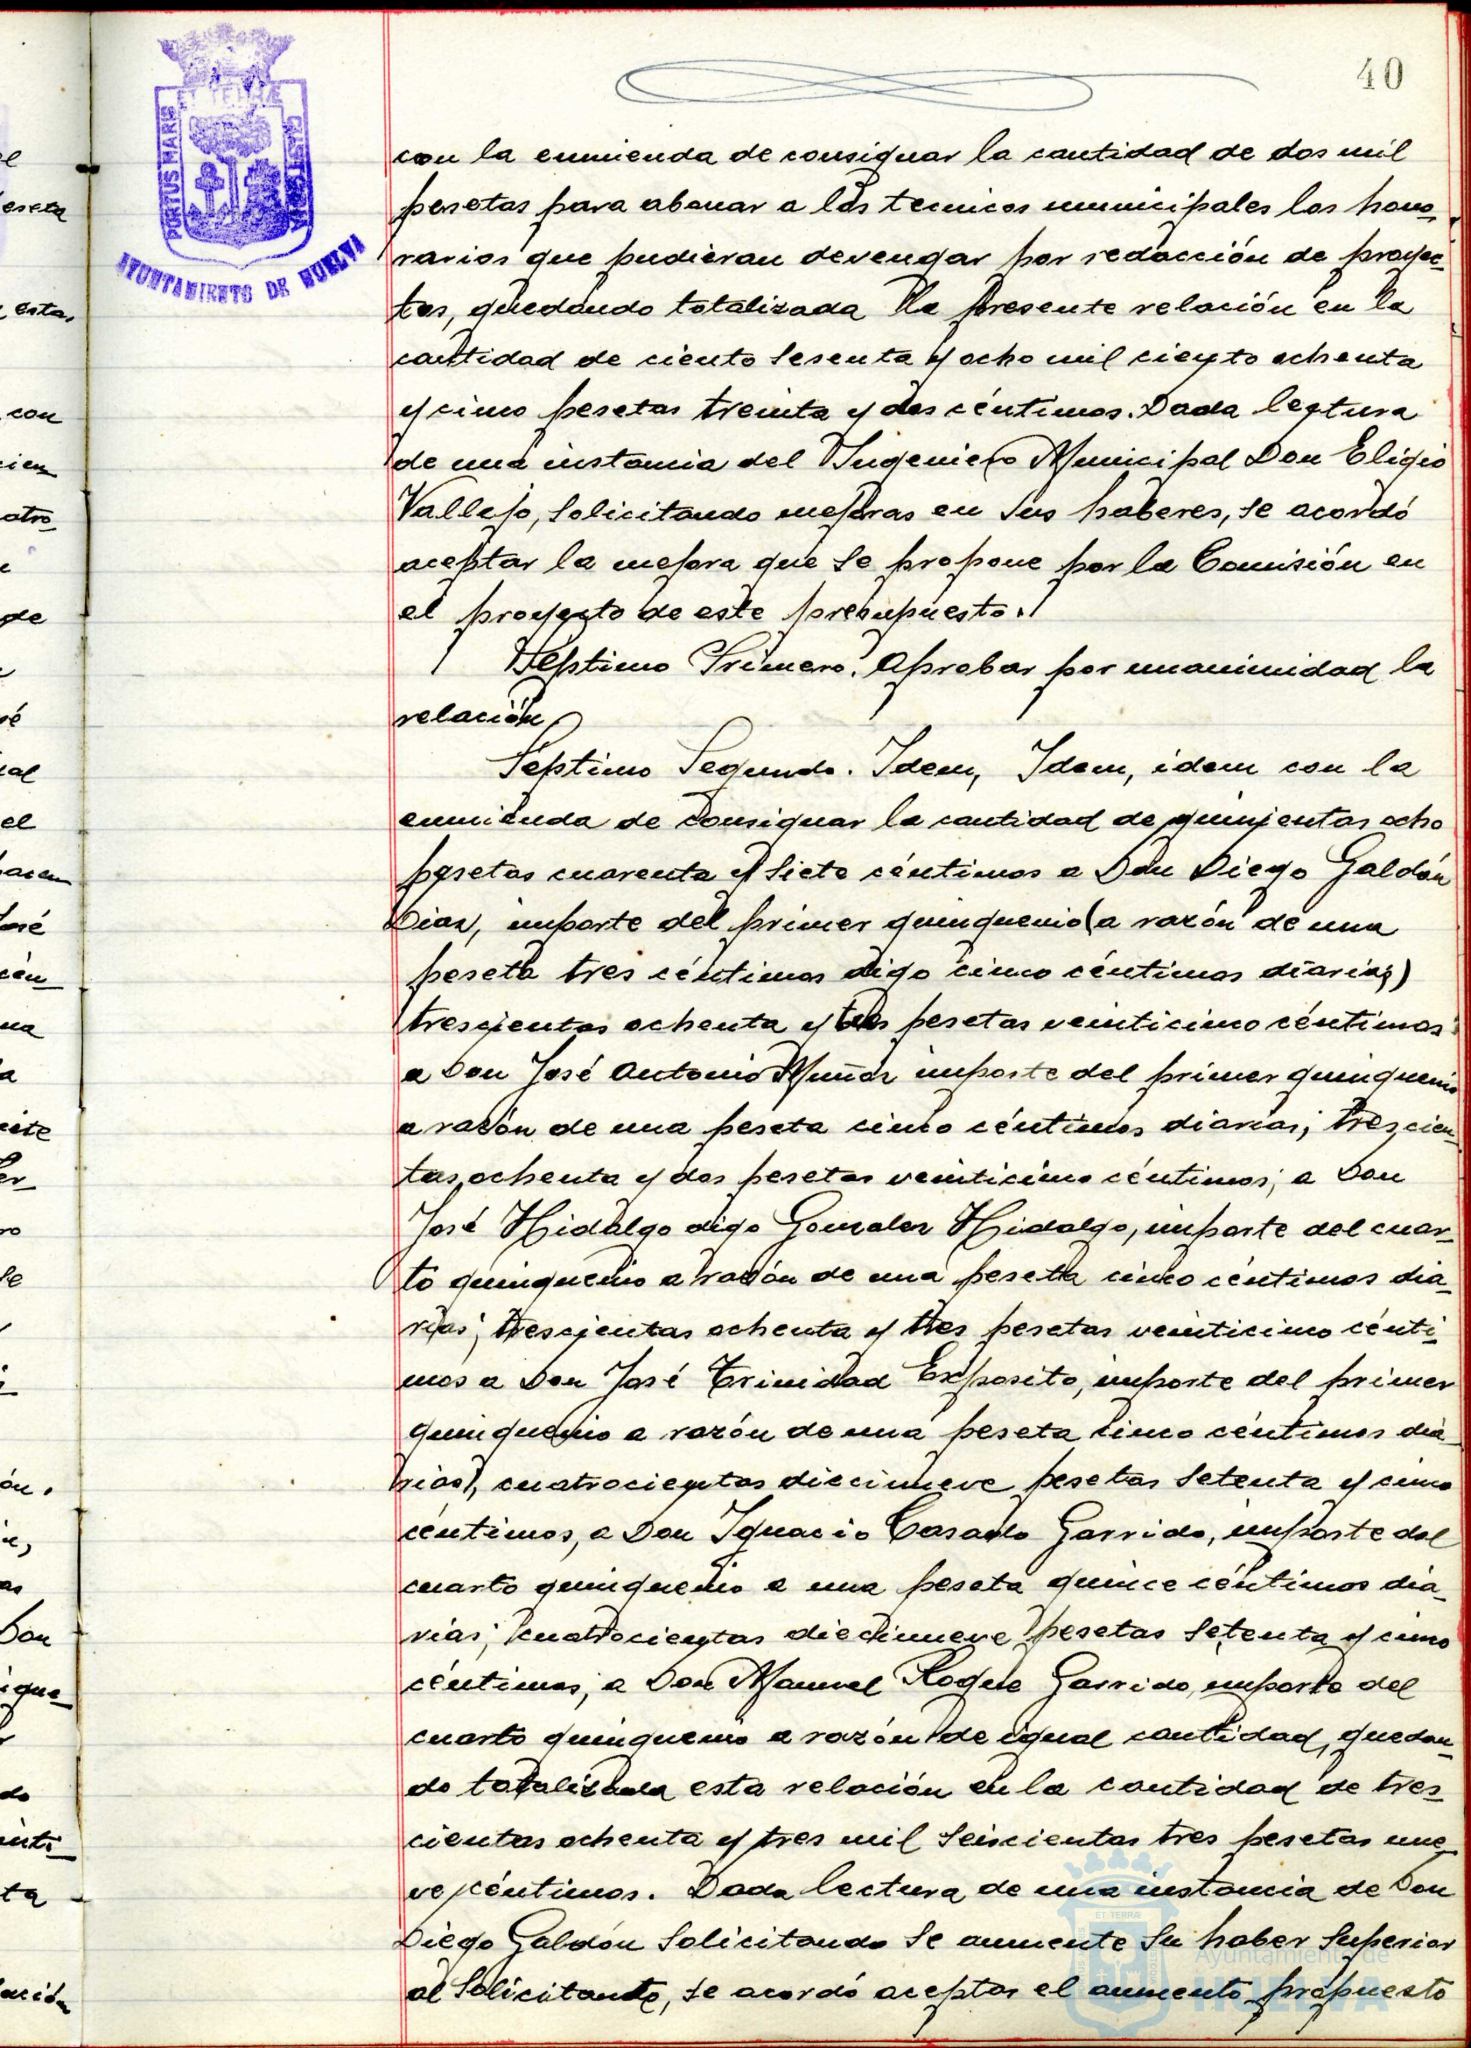 40
ET TERRÆ
PORTUS MARIS
CUSTODIA
AYUNTAMIENTO DE HUELVA
con la enmienda de consignar la cantidad de dos mil
pesetas para abonar a los tecnicos municipales los hono-
rarios que pudieran devengar por redacción de proyec-
tos, quedando totalizada la presente relación en la
cantidad de ciento sesenta y ocho mil ciento ochenta
y cinco pesetas treinta y dos céntimos. Dada lectura
de una instancia del Ingeniero Municipal Don Eligio
Vallejo, solicitando mejoras en sus haberes, se acordó
aceptar la mejora que se propone por la Comisión en
el proyecto de este presupuesto.
Septimo Primero. Aprobar por unanimidad la
relación
Septimo Segundo. Idem, Idem, idem con la
enmienda de consignar la cantidad de quinientas ocho
pesetas cuarenta y siete céntimos a Don Diego Galdón
Diaz, importe del primer quinquenio (a razón de una
peseta tres céntimos digo cinco céntimos diarias)
trescientas ochenta y tres pesetas veinticinco céntimos
a Don José Antonio Muñoz importe del primer quinquenio
a razón de una peseta cinco céntimos diarias; trescien-
tas ochenta y dos pesetas veinticinco céntimos, a Don
José Hidalgo digo Gonzalez Hidalgo, importe del cuar-
to quinquenio a razón de una peseta cinco céntimos dia-
rias; trescientas ochenta y tres pesetas veinticinco cénti-
mos a Don José Trinidad Exposito, importe del primer
quinquenio a razón de una peseta cinco céntimos dia-
rias), cuatrocientas diecinueve pesetas setenta y cinco
céntimos, a Don Ignacio Casado Garrido, importe del
cuarto quinquenio a una peseta quince céntimos dia-
rias; cuatrocientas diecinueve pesetas setenta y cinco
céntimos, a Don Manuel Roque Garrido, importe del
cuarto quinquenio a razón de igual cantidad, quedan-
do totalizada esta relación en la cantidad de tres-
cientas ochenta y tres mil seiscientas tres pesetas nue-
ve céntimos. Dada lectura de una instancia de Don
Diego Galdón solicitando se aumente su haber superior
al solicitando, se acordó aceptar el aumento propuesto
Ayuntamiento de
HUELVA